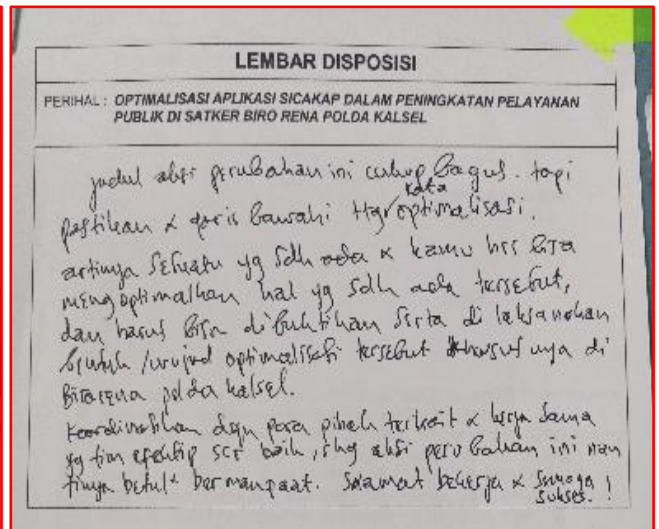 LEMBAR DISPOSISI
PERIHAL : OPTIMALISASI APLIKASI SICAKAP DALAM PENINGKATAN PELAYANAN
PUBLIK DI SATKER BIRO RENA POLDA KALSEL
judul aksi perubahan ini cukup bagus. tapi
kata
pastikan & garis bawahi optimalisasi.
artinya sesuatu yg sdh ada & kamu hrs bisa
mengoptimalkan hal yg sdh ada tersebut,
dan harus bisa dibuktikan serta di laksanakan
bentuk / wujud optimalisasi tersebut khususnya di
Birorena polda kalsel.
Koordinasikan dgn para pihak terkait & kerja sama
yg tim efektip scr baik, shg aksi perubahan ini nan
tinya betul² bermanpaat. Selamat bekerja & Semoga
Sukses. !